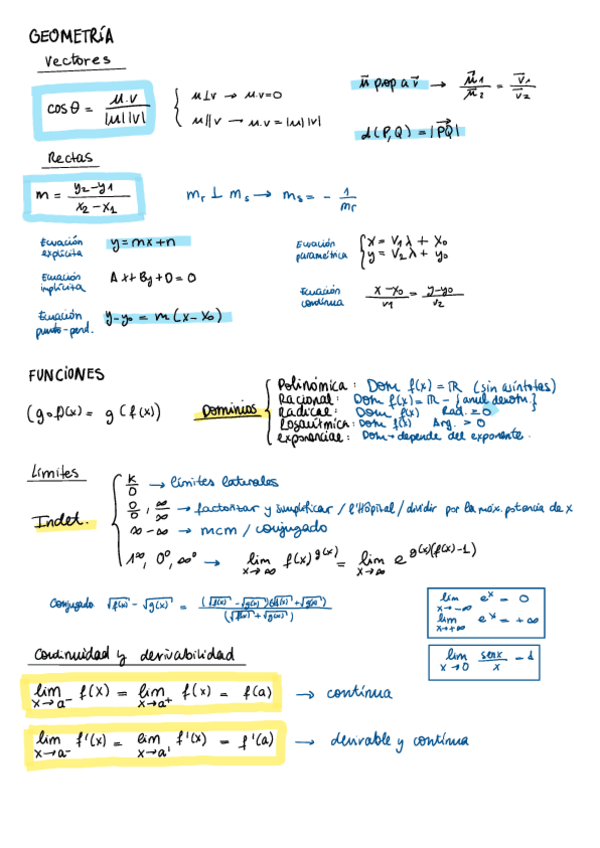 GEOMETRÍA
Vectores
cos θ = u.v / |u||v|
u⊥v → u.v=0
u∥v → u.v = |u||v|
u⃗ prop a v⃗ → u⃗1/u⃗2 = v⃗1/v⃗2
d(P,Q) = |PQ⃗|
Rectas
m = y2-y1 / x2-x1
mr ⊥ ms → ms = - 1/mr
Ecuación explícita y = mx+n
Ecuación implícita Ax+By+D=0
Ecuación punto-pend. y-y0 = m(x-x0)
Ecuación paramétrica x = v1λ + x0
y = v2λ + y0
Ecuación continua x-x0/v1 = y-y0/v2
FUNCIONES
(g∘f)(x) = g(f(x))
Dominios
Polinómica: Dom f(x) = ℝ (sin asíntotas)
Racional: Dom f(x) = ℝ - {anul denom.}
Radical: Dom f(x) Rad. ≥ 0
Logarítmica: Dom f(x) Arg. > 0
exponencial: Dom → depende del exponente.
Límites
Indet.
k/0 → límites laterales
0/0, ∞/∞ → factorizar y simplificar / l'Hôpital / dividir por la máx. potencia de x
∞-∞ → mcm / conjugado
1^∞, 0^0, ∞^0 → lim x→∞ f(x)^g(x) = lim x→∞ e^g(x)(f(x)-1)
Conjugado √f(x) - √g(x) = (√f(x) - √g(x))(√f(x) + √g(x)) / (√f(x) + √g(x))
lim x→-∞ e^x = 0
lim x→+∞ e^x = +∞
lim x→0 senx/x = 1
Continuidad y derivabilidad
lim x→a- f(x) = lim x→a+ f(x) = f(a) → contínua
lim x→a- f'(x) = lim x→a+ f'(x) = f'(a) → derivable y contínua